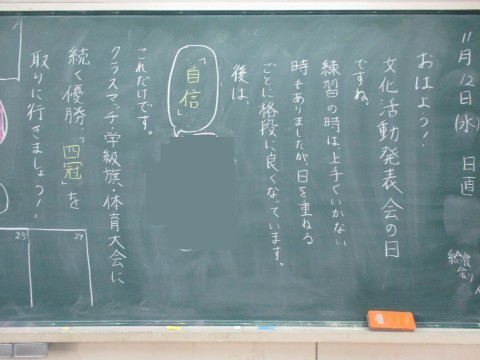 11月12日(水)
日直
おはよう!
文化活動発表会の日
ですね。
練習の時は、上手くいかない
時もありましたが、日を重ねる
ごとに格段に良くなっています。
後は、
「自信」
これだけです。
クラスマッチ・学級旗・体育大会に
続く優勝…「四冠」を
取りに行きましょう!
24
25